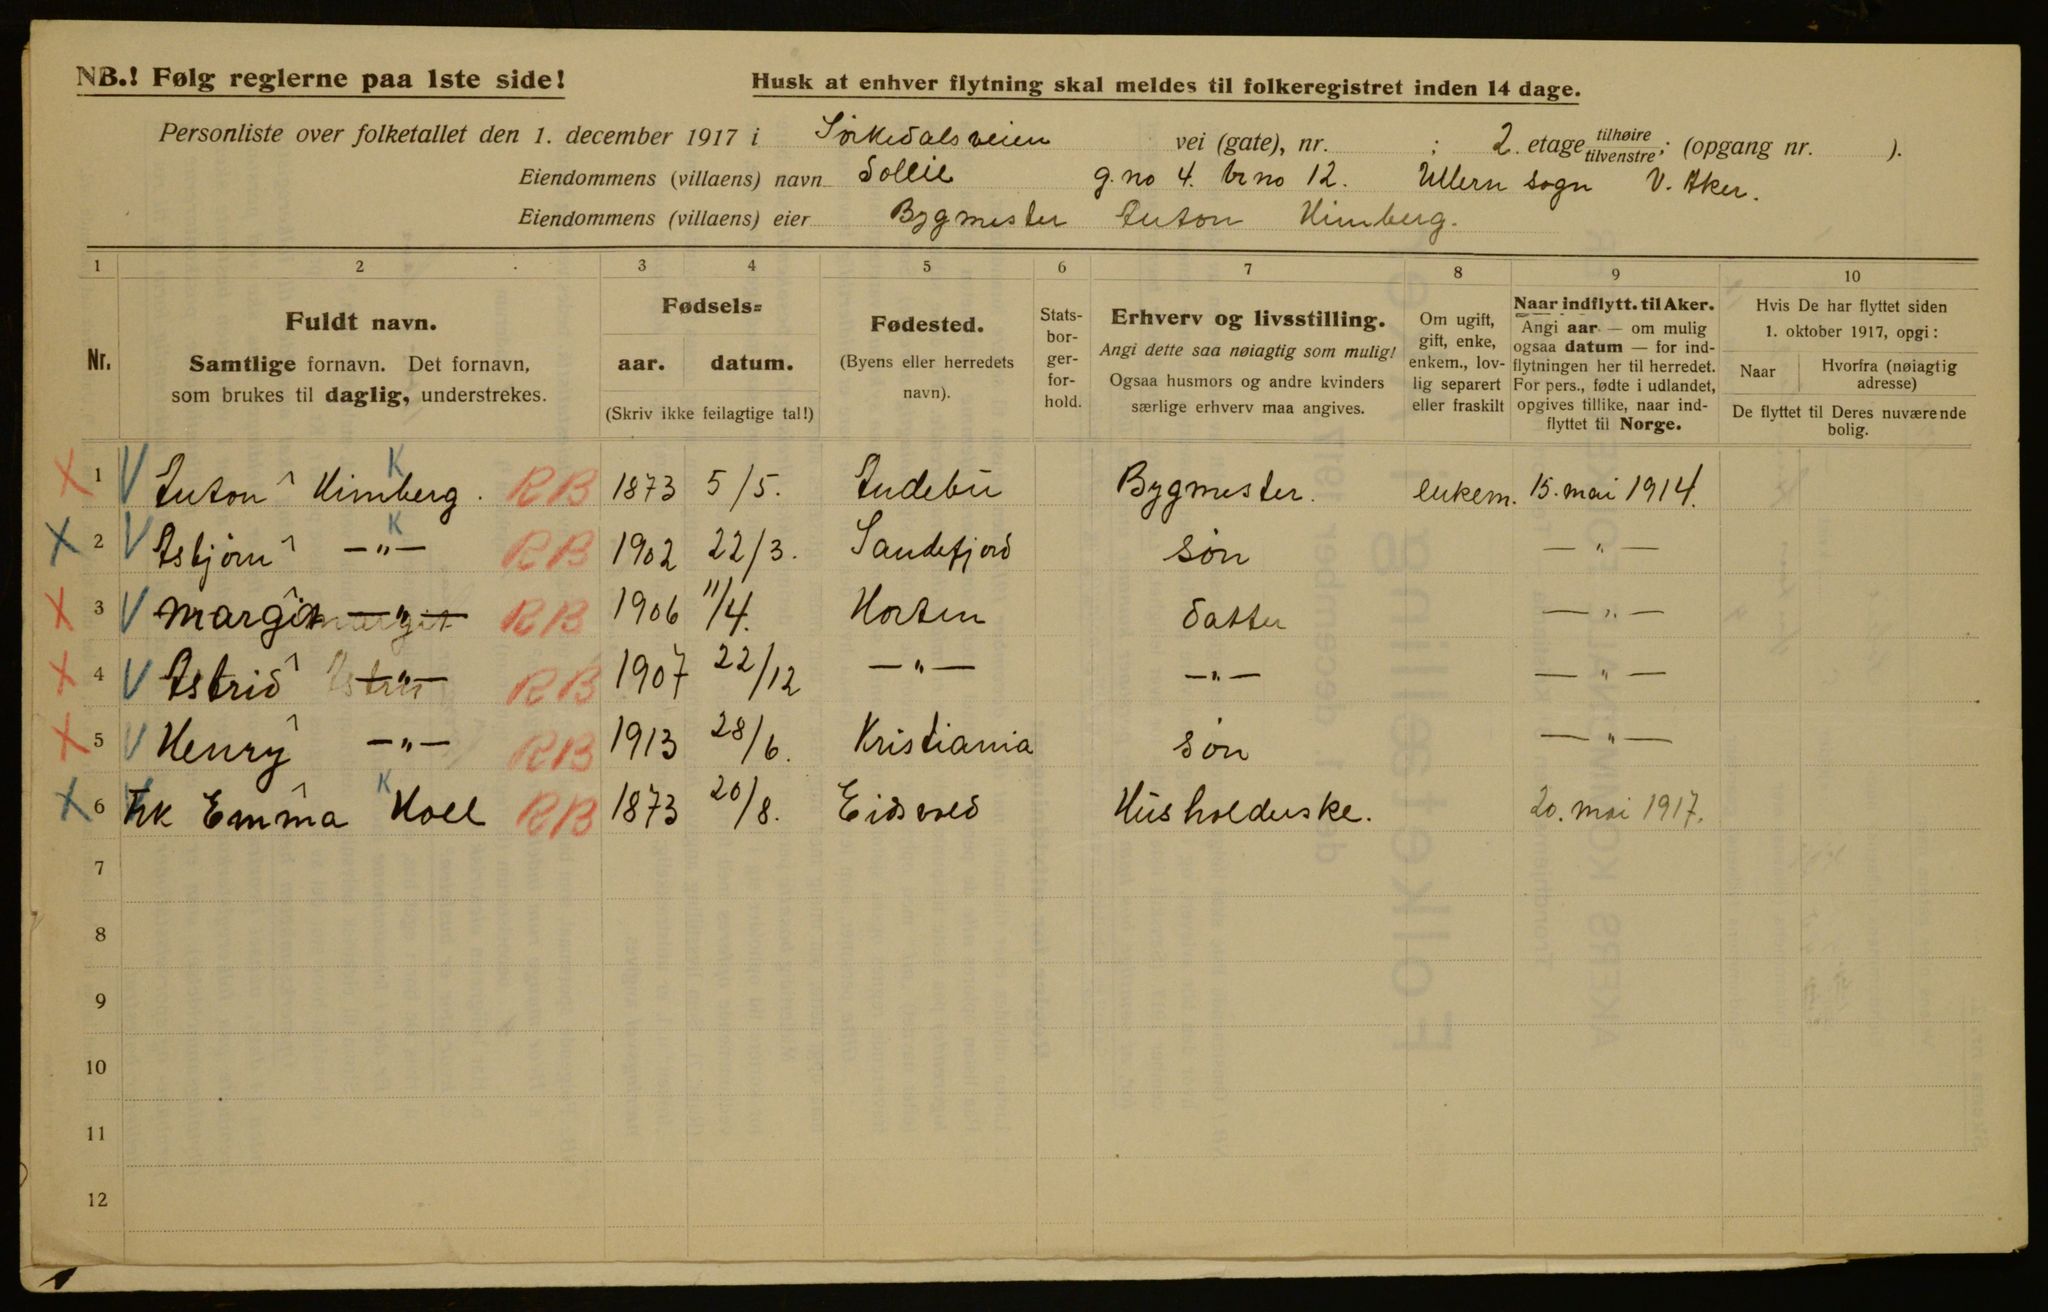 NB.! Følg reglerne paa 1ste side!
Husk at enhver flytning skal meldes til folkeregistret inden 14 dage.
Personliste over folketallet den 1. december 1917 i Sørkedalsveien vei (gate), nr. ; 2. etage tilhøire tilvenstre; (opgang nr. ).
Eiendommens (villaens) navn Sollie g.no 4. br no 12. Ullern sogn V. Aker.
Eiendommens (villaens) eier Bygmester Anton Himberg.
1 2 3 4 5 6 7 8 9 10
Nr.
Fuldt navn.
Samtlige fornavn. Det fornavn,
som brukes til daglig, understrekes.
Fødsels=
aar. datum.
(Skriv ikke feilagtige tal!)
Fødested.
(Byens eller herredets
navn).
Stats-
bor-
ger-
for-
hold.
Erhverv og livsstilling.
Angi dette saa nøiagtig som mulig!
Ogsaa husmors og andre kvinders
særlige erhverv maa angives.
Om ugift,
gift, enke,
enkem., lov-
lig separert
eller fraskilt
Naar indflytt. til Aker.
Angi aar — om mulig
ogsaa datum — for ind-
flytningen her til herredet.
For pers., fødte i udlandet,
opgives tillike, naar ind-
flyttet til Norge.
Hvis De har flyttet siden
1. oktober 1917, opgi:
Naar Hvorfra (nøiagtig
adresse)
De flyttet til Deres nuværende
bolig.
X 1 V Anton Himberg. K RB 1873 5/5. Andebu Bygmester. enkem. 15. mai 1914.
X 2 V Asbjørn —"— K RB 1902 22/3. Sandefjord søn —"—
X 3 V Margit —"— RB 1906 11/4. Horten datter —"—
X 4 V Astrid —"— RB 1907 22/12 —"— —"— —"—
X 5 V Henry —"— RB 1913 28/6. Kristiania søn —"—
X 6 Frk Emma Holl K RB 1873 20/8. Eidsvold Husholderske. 20. mai 1917.
7
8
9
10
11
12